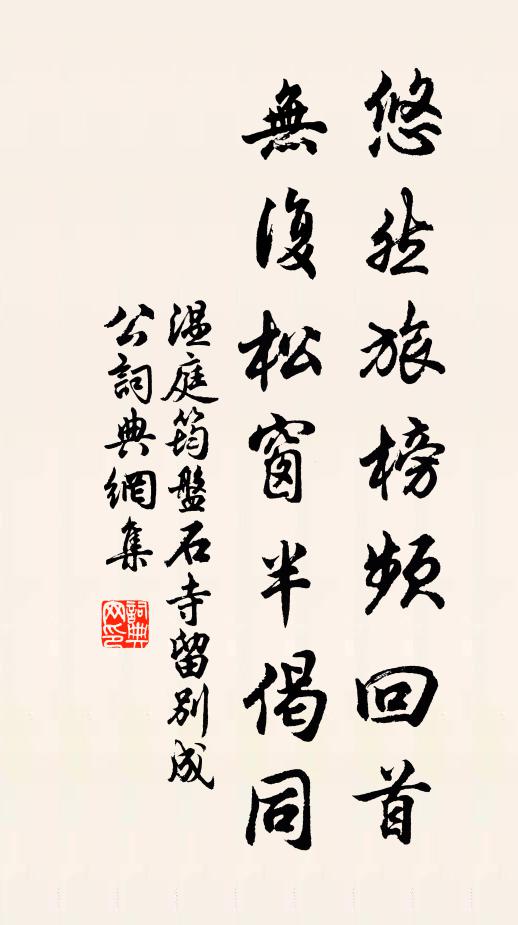 悠然旅榜頻回首
無復松窗半偈同
温庭筠盤石寺留別成
公詞典網集
詞典網印